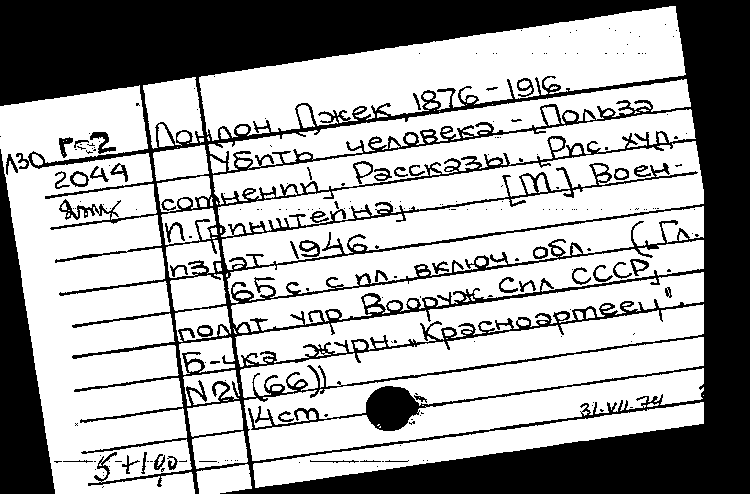 Лондон, Джек, 1876-1916.
Г-2
Л30
2044
Убить человека. - [Польза
сомнений]. Рассказы. [Рис. худ.
П. Гринштейна]. [М.], Воен-
издат, 1946.
65 с. с ил., включ. обл. ("Гл.
полит. упр. Вооруж. Сил СССР].
Б-чка журн. "Красноармеец".
N 21 (66)).
14 см.
31.VII.74
5+1